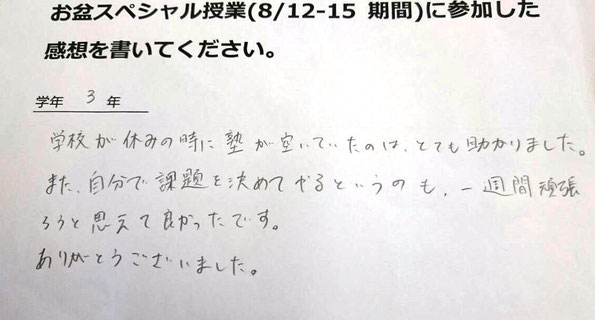 お盆スペシャル授業(8/12-15 期間)に参加した
感想を書いてください。
学年 3 年
学校が休みの時に塾が空いていたのは、とても助かりました。
また、自分で課題を決めてやるというのも、一週間頑張
ろうと思えて良かったです。
ありがとうございました。